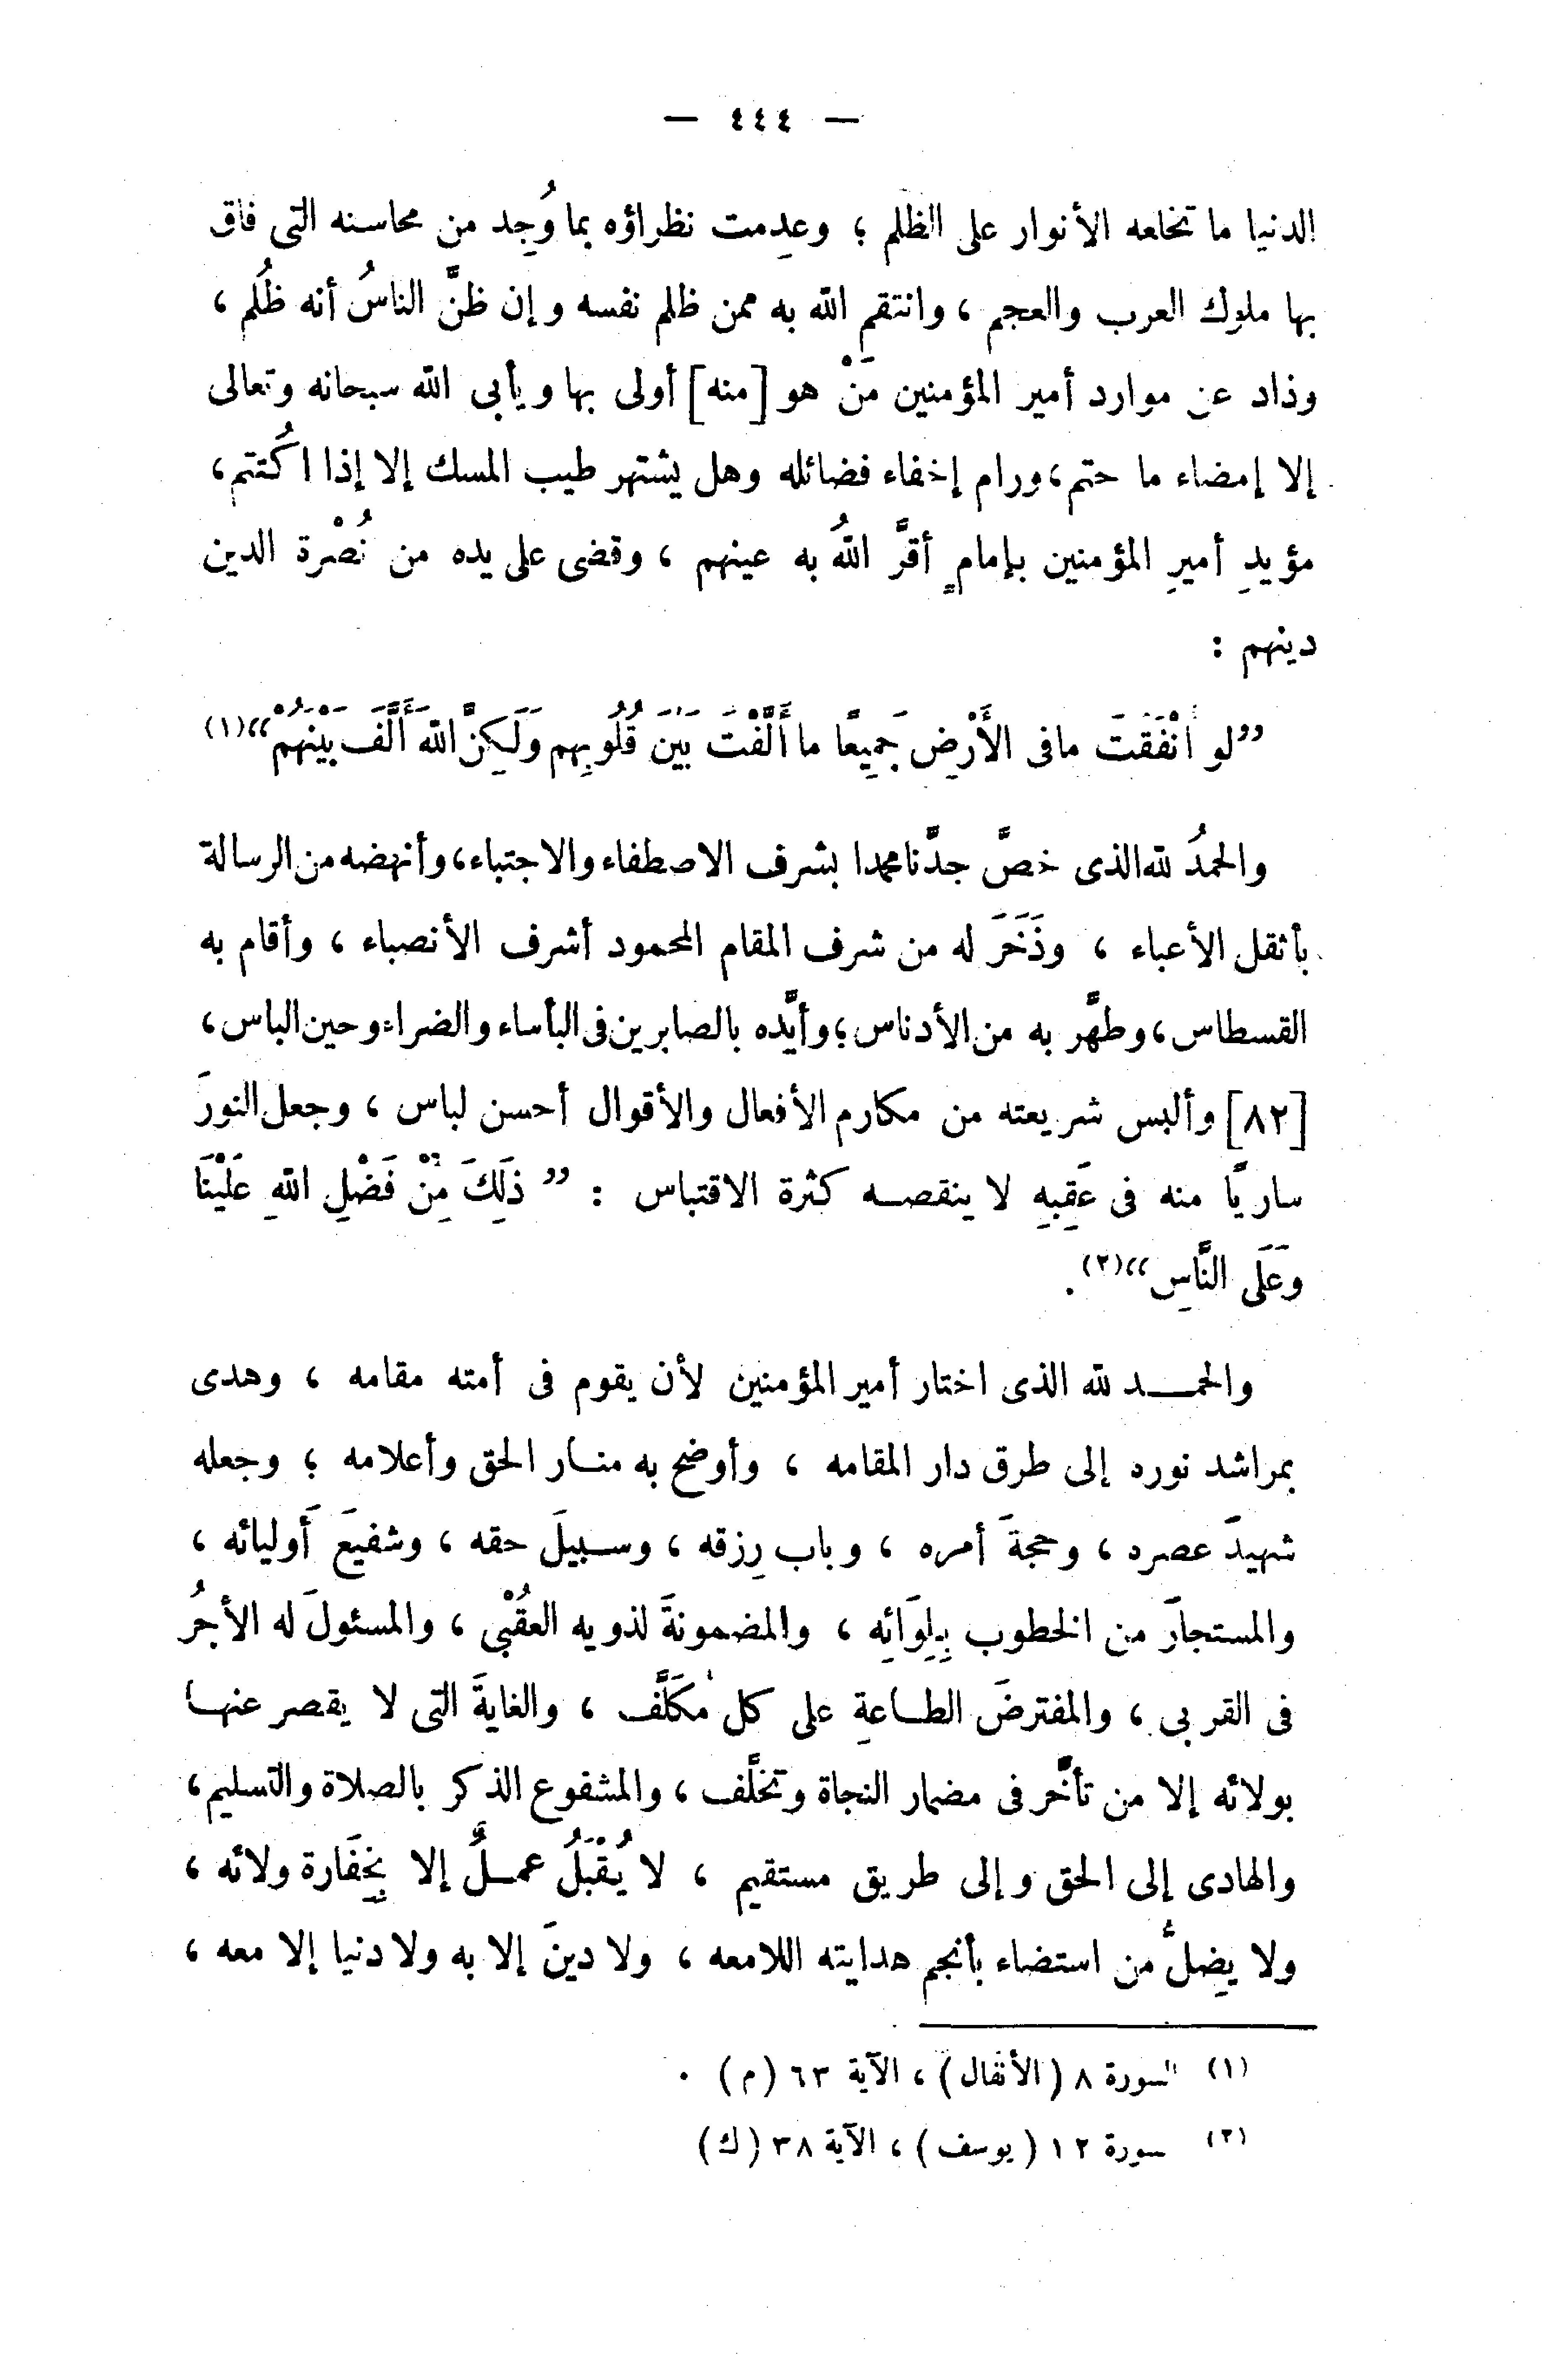 — ٤٤٤ —
الدنيا ما تخلعه الأنوار على الظلم ؛ وعدِمت نظراؤه بما وُجِد من محاسنه التى فاق
بها ملوك العرب والعجم ، وانتقم الله به ممن ظلم نفسه وإن ظنَّ الناسُ أنه ظُلم ،
وذاد عن موارد أمير المؤمنين مَنْ هو [منه] أولى بها ويأبى الله سبحانه وتعالى
إلا إمضاء ما حتم ، ورام إخفاء فضائله وهل يشتهر طيب المسك إلا إذا اكتُتم ،
مؤيدِ أميرِ المؤمنين بإمامٍ أقرَّ اللهُ به عينهم ، وقضى على يده من نُصْرة الدين
دينهم :
”لو أَنْفَقْتَ مافى الأَرْضِ جَمِيعًا ما أَلَّفْتَ بَيْنَ قُلُوبِهم وَلَكِنَّ اللهَ أَلَّفَ بَيْنَهُمْ“(١)
والحمدُ لله الذى خصَّ جدَّنا محمدا بشرف الاصطفاء والاجتباء ، وأنهضه من الرسالة
بأثقل الأعباء ، وذَخَرَ له من شرف المقام المحمود أشرف الأنصباء ، وأقام به
القسطاس ، وطهَّر به من الأدناس ؛ وأيَّده بالصابرين فى البأساء والضراء وحين الباس ،
[٨٢] وألبس شريعته من مكارم الأفعال والأقوال أحسن لباس ، وجعل النورَ
ساريًّا منه فى عَقِبِهِ لا ينقصه كثرة الاقتباس : ” ذَلِكَ مِنْ فَضْلِ اللهِ عَلَيْنَا
وَعَلَى النَّاسِ“(٢) .
والحمد لله الذى اختار أمير المؤمنين لأن يقوم فى أمته مقامه ، وهدى
بمراشد نوره إلى طرق دار المقامه ، وأوضح به منار الحق وأعلامه ؛ وجعله
شهيدَ عصره ، وحجةَ أمره ، وباب رِزقه ، وسبيلَ حقه ، وشفيعَ أوليائه ،
والمستجارَ من الخطوب بِلِوَائِه ، والمضمونةَ لذويه العقْبُى ، والمسئولَ له الأجرُ
فى القربى ، والمفترضَ الطاعةِ على كل مُكلَّف ، والغايةَ التى لا يقصر عنها
بولائه إلا من تأخَّر فى مضمار النجاة وتخلَّف ، والمشفوع الذكر بالصلاة والتسليم ،
والهادى إلى الحق وإلى طريق مستقيم ، لا يُقْبَلُ عملٌ إلا بِخِفَارة ولائه ،
ولا يضِلُّ من استضاء بأنجم هدايته اللامعه ، ولا دينَ إلا به ولا دنيا إلا معه ،
(١) السورة ٨ (الأنفال) ، الآية ٦٣ (م) .
(٢) سورة ١٢ (يوسف) ، الآية ٣٨ (ك)